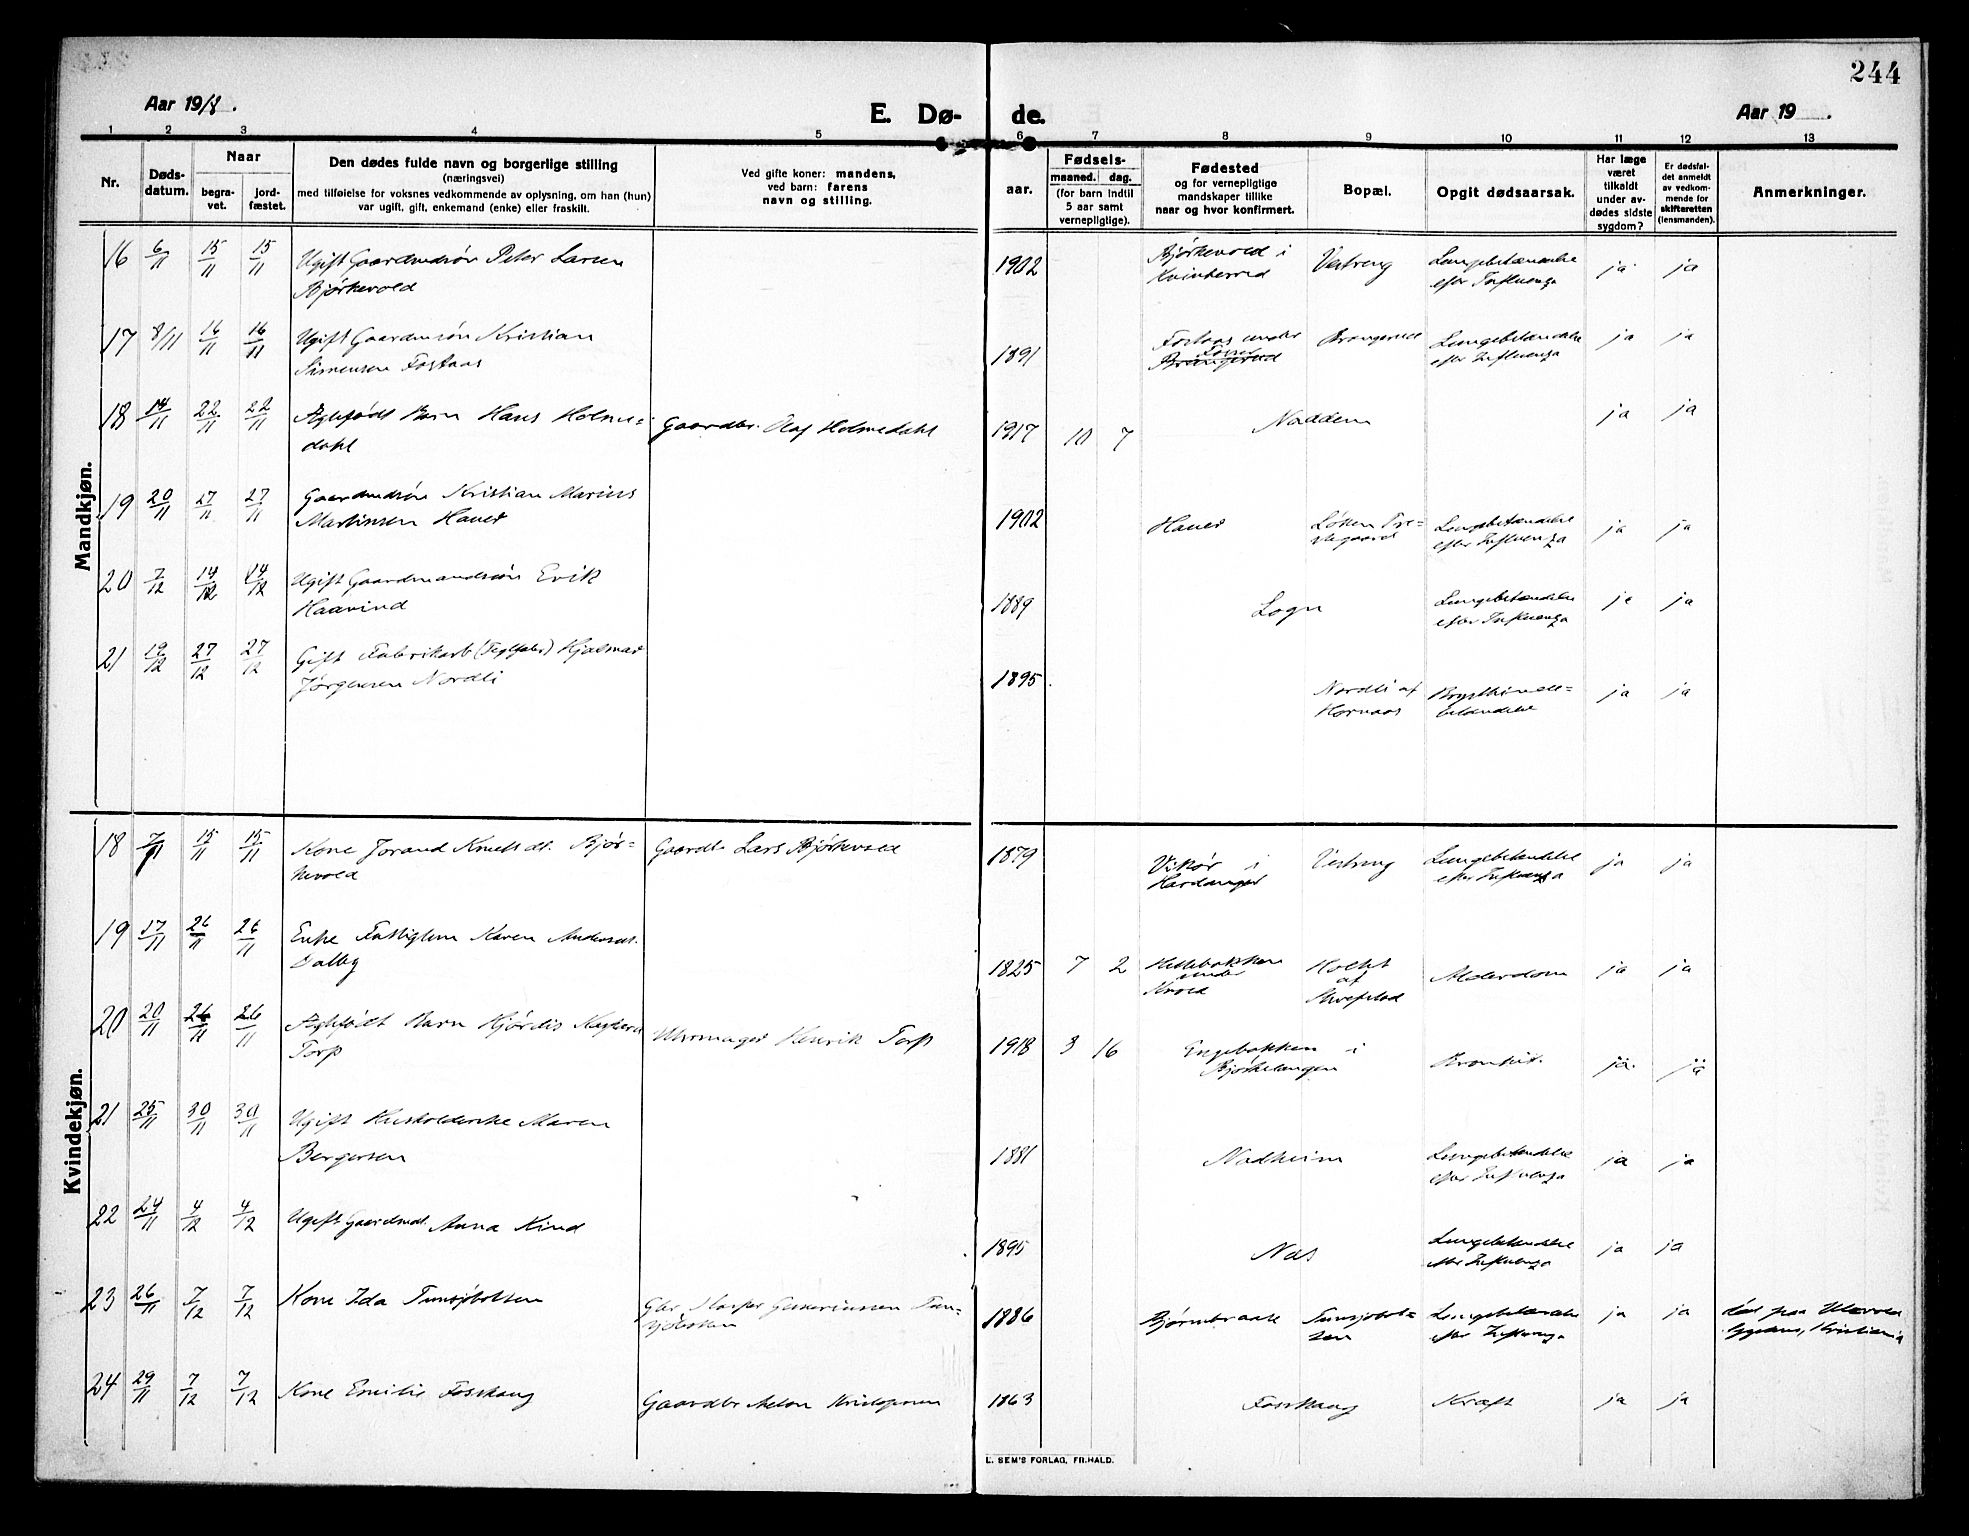 244
Aar 1918.
E. Dø- de.
Aar 19 .
1 2 3 4 5 6 7 8 9 10 11 12 13
Nr.
Døds-
datum.
Naar
begra-
vet.
jord-
fæstet.
Den dødes fulde navn og borgerlige stilling
(næringsvei)
med tilføielse for voksnes vedkommende av oplysning, om han (hun)
var ugift, gift, enkemand (enke) eller fraskilt.
Ved gifte koner: mandens,
ved barn: farens
navn og stilling.
aar.
Fødsels-
maaned. dag.
(for barn indtil
5 aar samt
vernepligtige).
Fødested
og for vernepligtige
mandskaper tillike
naar og hvor konfirmert.
Bopæl.
Opgit dødsaarsak.
Har læge
været
tilkaldt
under av-
dødes sidste
sygdom?
Er dødsfal-
det anmeldt
av vedkom-
mende for
skifteretten
(lensmanden).
Anmerkninger.
Mandkjøn.
16 6/11 15/11 15/11 Ugift Gaardmdsøn Peter Larsen
Bjørkevold
1902 Bjørkevold i
Kvinherred
Vestreng Lungebetændelse
efter Influenza
ja ja
17 8/11 16/11 16/11 Ugift Gaardmsøn Kristian
Simensen Fostaas
1891 Fostaas under
Fosser
Brangerud
Brangerud Lungebetændelse
efter Influenza
ja ja
18 14/11 22/11 22/11 Ægtefødt Barn Hans Holme-
dahl
Gaardbr. Olaf Holmedahl
1917 10 7 Nadden ja ja
19 20/11 27/11 27/11 Gaardmdsøn Kristian Marius
Martinsen Haver
1902 Haver Løken Pre-
stegaard
Lungebetændelse
efter Influenza
ja ja
20 7/12 14/12 14/12 Ugift Gaardmandssøn Erik
Haavind
1889 Logn Lungebetændelse
efter Influenza
ja ja
21 19/12 27/12 27/12 Gift Fabrikarb (Teglfabr) Hjalmar
Jørgensen Nordli
1895 Nordli af
Hornaas
Brysthinde-
betændelse
ja ja
Kvindekjøn.
18 7/11 15/11 15/11 Kone Jorand Knuts dt. Bjør-
kevold
Gaardb Lars Bjørkevold
1879 Vikør i
Hardanger
Vestreng Lungebetændelse
efter Influenza
ja ja
19 17/11 26/11 26/11 Enke Fattiglem Karen Andersdt.
Dalby
1825 7 2 Hellebakken
under
Kvold
Holkt
af
Kvefstad
Alderdom ja ja
20 20/11 26/11 26/11 Ægtefødt Barn Hjørdis
Torp
Uhrmager Henrik Torp
1918 3 16 Engebakken i
Bjørkelangen
Bronkit. ja ja
21 25/11 30/11 30/11 Ugift Husholderske Maren
Bergersen
1881 Nadheim Lungebetændelse
efter Influenza
ja ja
22 24/11 4/12 4/12 Ugift Gaardmdt. Anna Kind
1895 Næs Lungebetændelse
efter Influenza
ja ja
23 26/11 7/12 7/12 Kone Ida Tunsjøbotten
Gbr Kasper Gunerinssen Tun-
sjøbotten
1886 Bjørnebraate Tunsjøbot-
ten
Lungebetændelse
efter Influenza
ja ja død paa Ulevold
sygehus, Kristiania
24 29/11 7/12 7/12 Kone Emilie Fosshaug
Gaardbr Anton Kristoffersen
1863 Fosshaug Kræft ja ja
L. SEM'S FORLAG, FR.HALD.